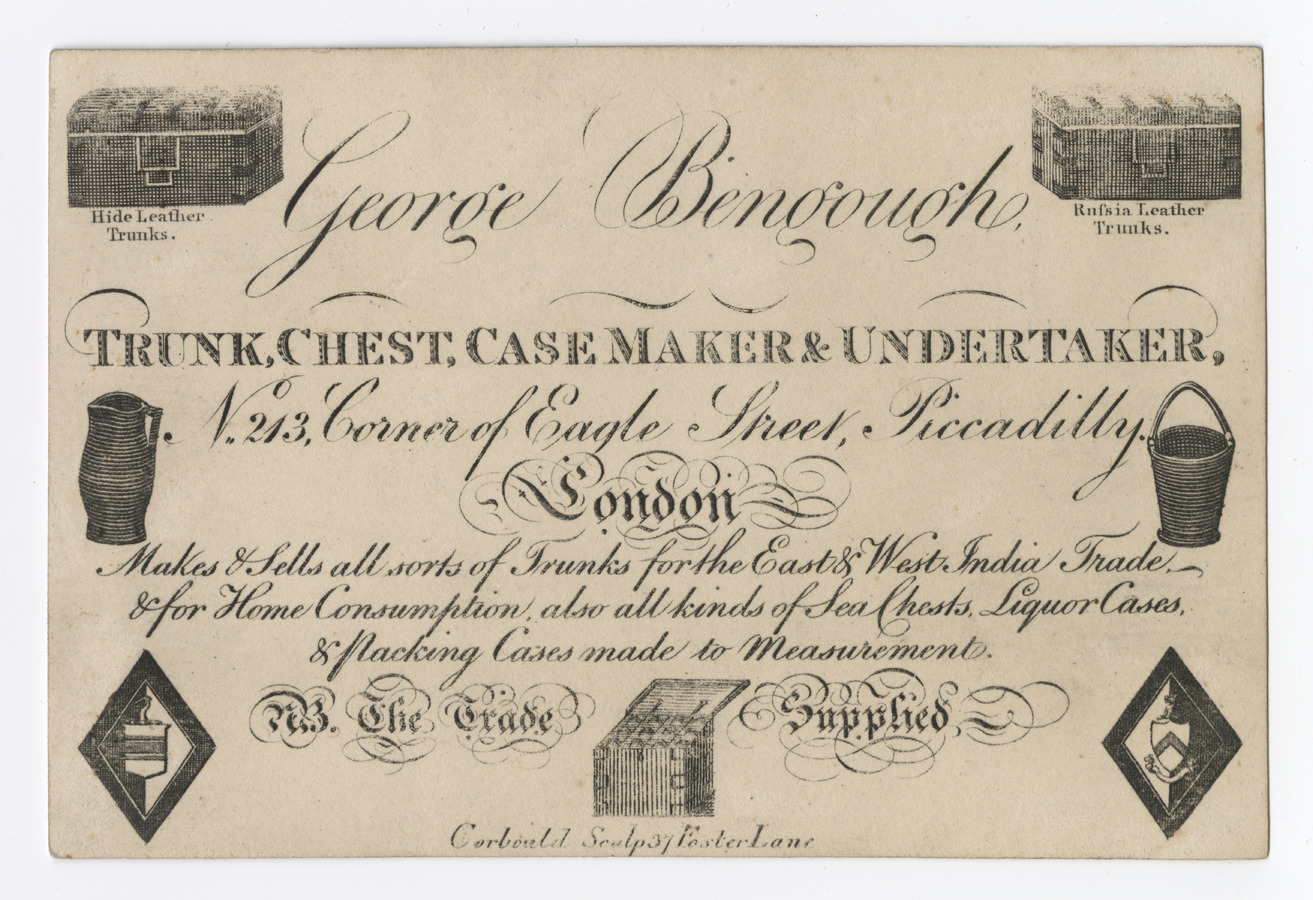 George Bengough,
Hide Leather
Trunks.
Rufsia Leather
Trunks.
TRUNK, CHEST, CASE MAKER & UNDERTAKER,
No. 213, Corner of Eagle Street, Piccadilly.
London
Makes & Sells all sorts of Trunks for the East & West India Trade,
& for Home Consumption, also all kinds of Sea Chests, Liquor Cases,
& Packing Cases made to Measurement.
NB. The Trade Supplied,
Corbould Sculp 37 Foster Lane